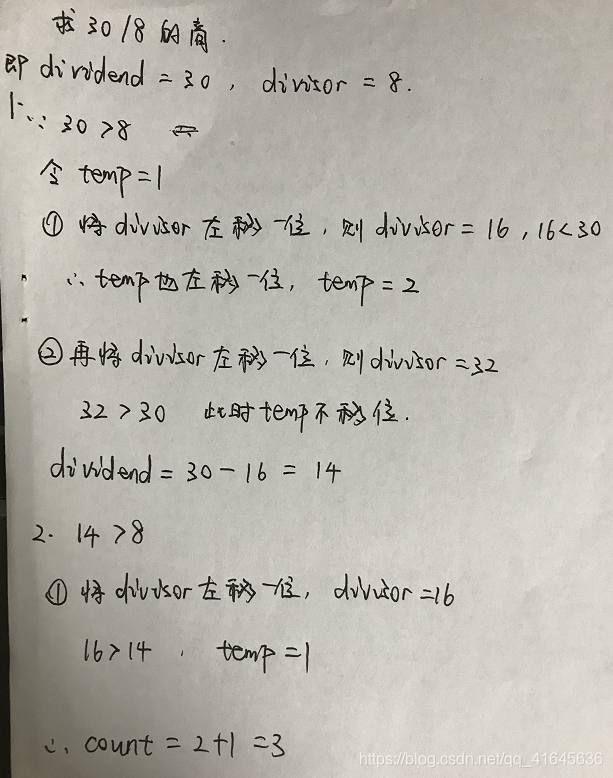 求 30/8 的商.
即 dividend = 30, divisor = 8.
1. ∵ 30 > 8
令 temp = 1
① 将 divisor 左移一位, 则 divisor = 16, 16 < 30
∴ temp 也左移一位, temp = 2
② 再将 divisor 左移一位, 则 divisor = 32
32 > 30 此时 temp 不移位.
dividend = 30 - 16 = 14
2. 14 > 8
① 将 divisor 左移一位, divisor = 16
16 > 14, temp = 1
∴ count = 2+1 = 3
https://blog.csdn.net/qq_41645636